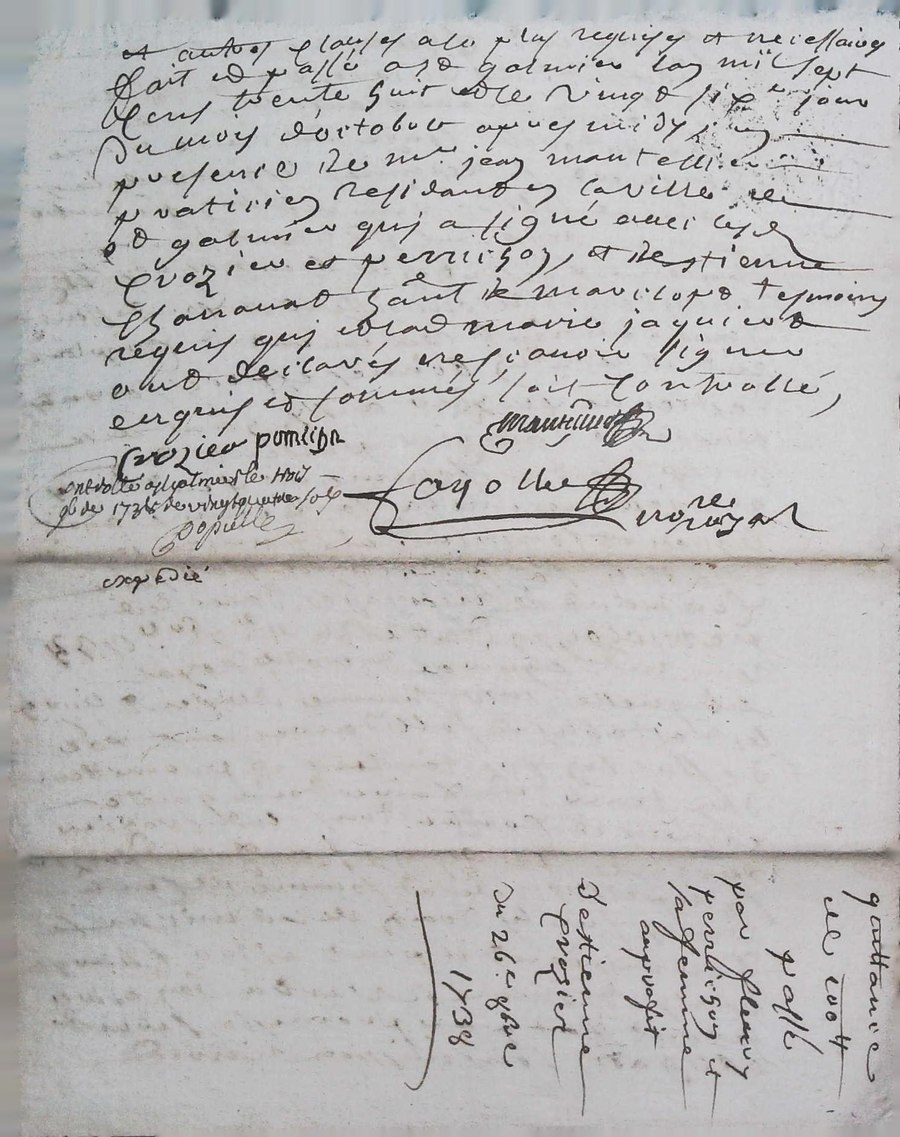 et autres clauses a ce plus requises et necessaires
fait et passé a st galmier lan mil sept
cens trente huit et le vingt sixe jour
du mois d'octobre apres midy en
presence de me jean mantellier
praticien residant en la ville de
st galmier qui a signé avec lesd
crozier et perrichon, et destienne
tesmoins
requis qui et lad marie
ont declarés ne scavoir signer
enquis et sommés, soit controllé,
crozier perrichon
mantellier
controllé a st galmier le trois
gbre 1738 vingt quatre sols
fayolle
nore royal
expedié
quittance
de 100 ₶
passé
par fleury
perrichon et
sa femme
au profit
destienne
crozier
du 26e 8bre
1738